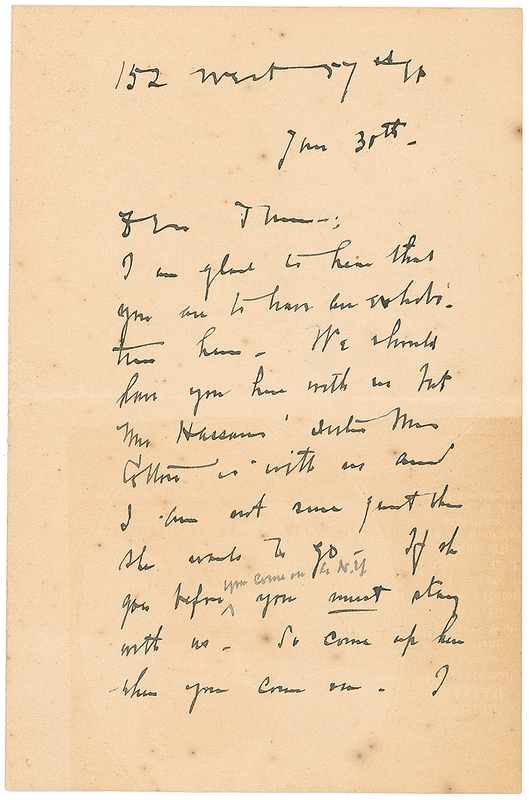 152 West 57 st
Jan 30th -
Dear
I am glad to hear that
you are to have an exhibi-
tion here - We should
have you here with us but
Mrs Hassam's sister Mrs
Cotton is with us and
I am not sure just when
she wants to go - If she
you come on to N.Y
goes before ^ you must stay
with us - So come up here
when you come on - I